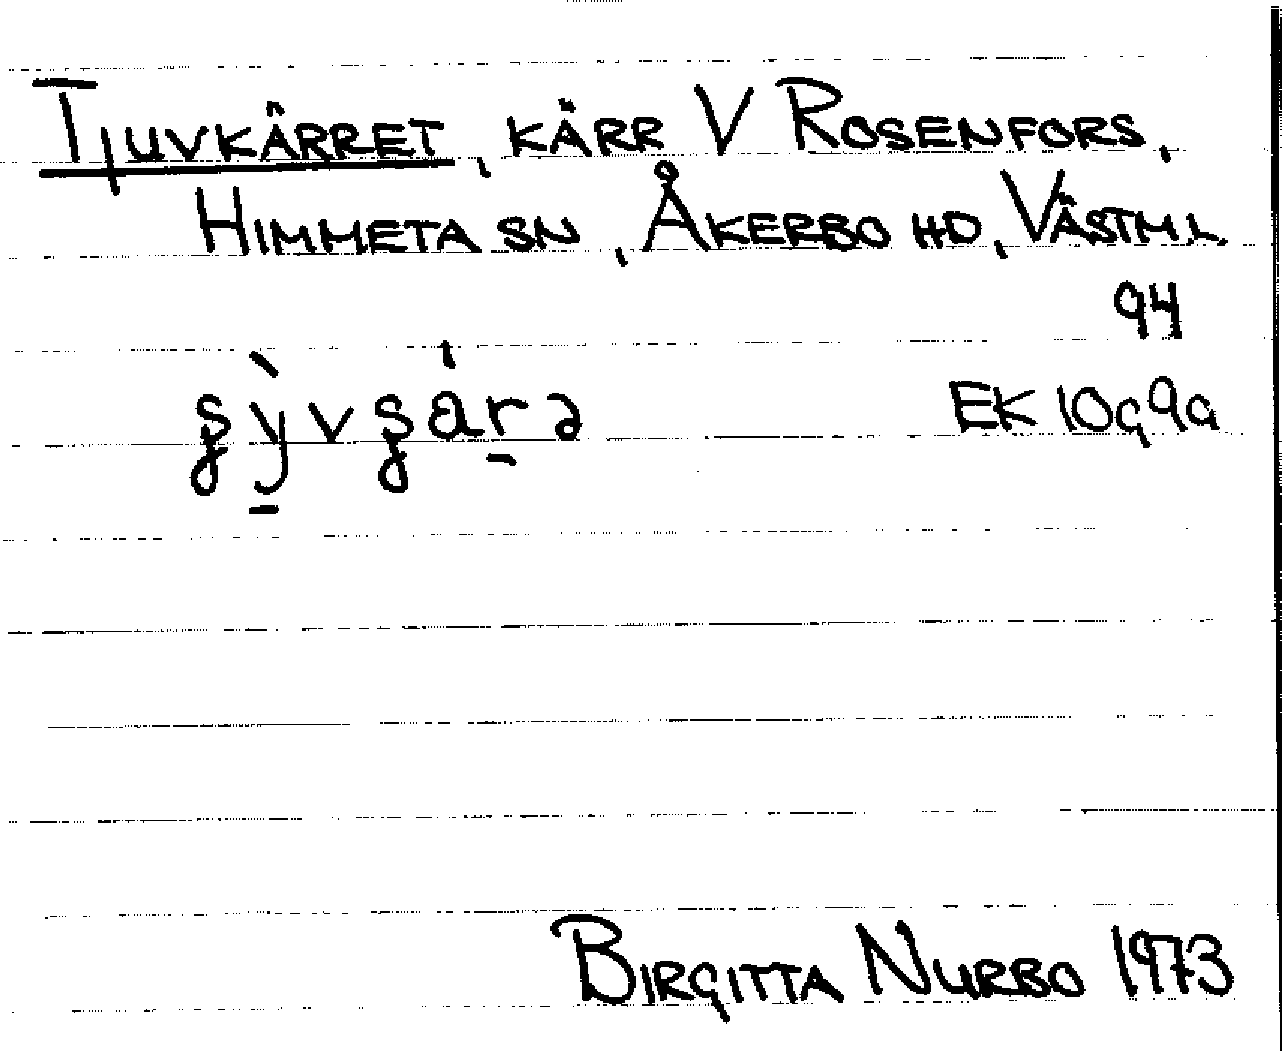 TJUVKÄRRET, KÄRR V ROSENFORS,
HIMMETA SN, ÅKERBO HD, VÄSTML
94
EK 10g9a
BIRGITTA NURBO 1973